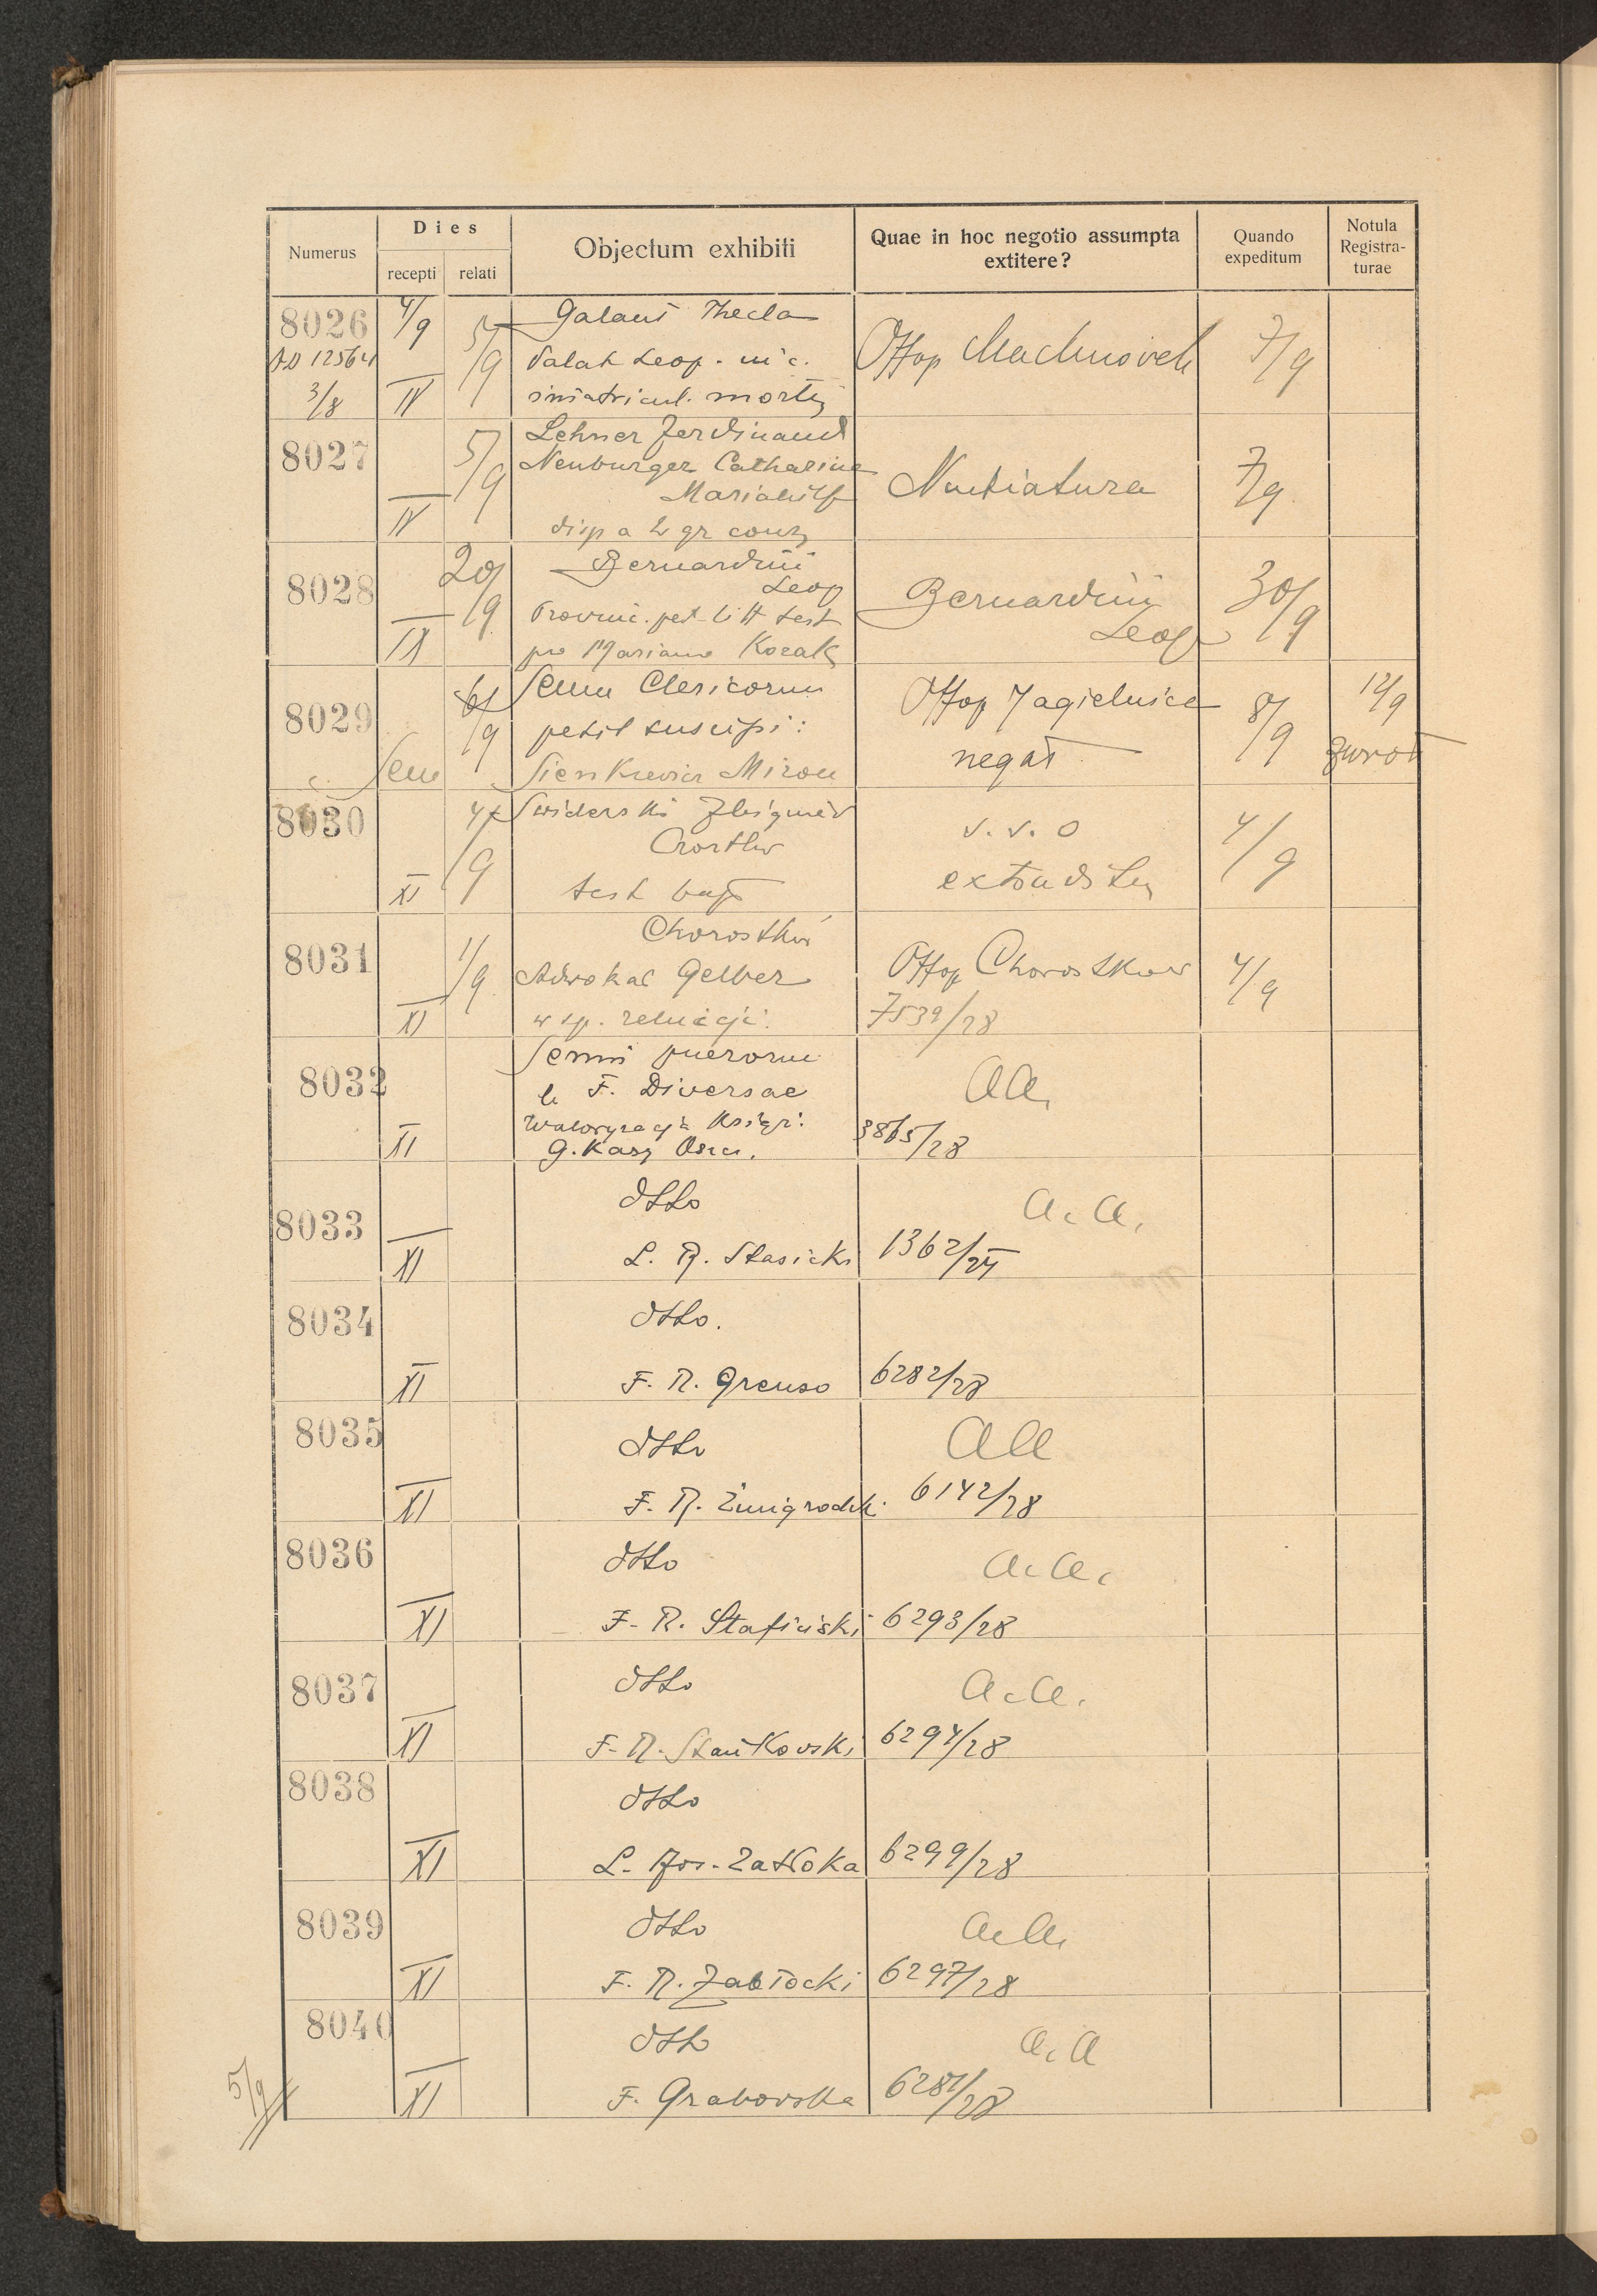 Numerus
Dies
recepti
relati
Objectum exhibiti
Quae in hoc negotio assumpta
extitere?
Quando
expeditum
Notula
Registra-
turae
8026
4/9
5/9
Galant Thecla
3/8
IV
Palat Leop.
mortis
Offop
7/9
8027
5/9
Lehner Ferdinand
Neuburger Catharina
Mariahilf
IV
disp a 2 gr
Nuntiatura
7/9
8028
20/9
Bernardini
Leop
IX
Provinc. pet. litt test
pro Mariano Kozak
Bernardini
Leop
30/9
8029
6/9
Sem Clericorum
petit suscipi:
Sem
Sienkiewicz Miron
Offop Jagielnica
negat
8/9
12/9
zwrot
8030
4/9
Swiderski Zbigniew
Czortków
XI
test bapt
v. v. o
extradit
4/9
8031
1/9
Chorostków
Adwokat Gelber
XI
w sp. relucji
Offop Chorostkow
7539/28
4/9
8032
Semin puerorum
F. Diversae
Waloryzacja Książ.
XI
G. Kasy Oszcz.
AA.
3865/28
8033
dtto
XI
L. R. Stasicki
A. A.
1362/25
8034
dtto.
XI
F. R.
6282/28
8035
dtto
XI
F. R. Żmigrodzki
AA
6142/28
8036
dtto
XI
F. R. Stafiński
A. A.
6293/28
8037
dtto
XI
F. R. Stańkowski
A. A.
6294/28
8038
dtto
XI
L. Zatłoka
6299/28
8039
dtto
XI
F. R. Zabłocki
A. A.
6297/28
8040
dtto
5/9
XI
F. Grabowska
A. A
6281/28